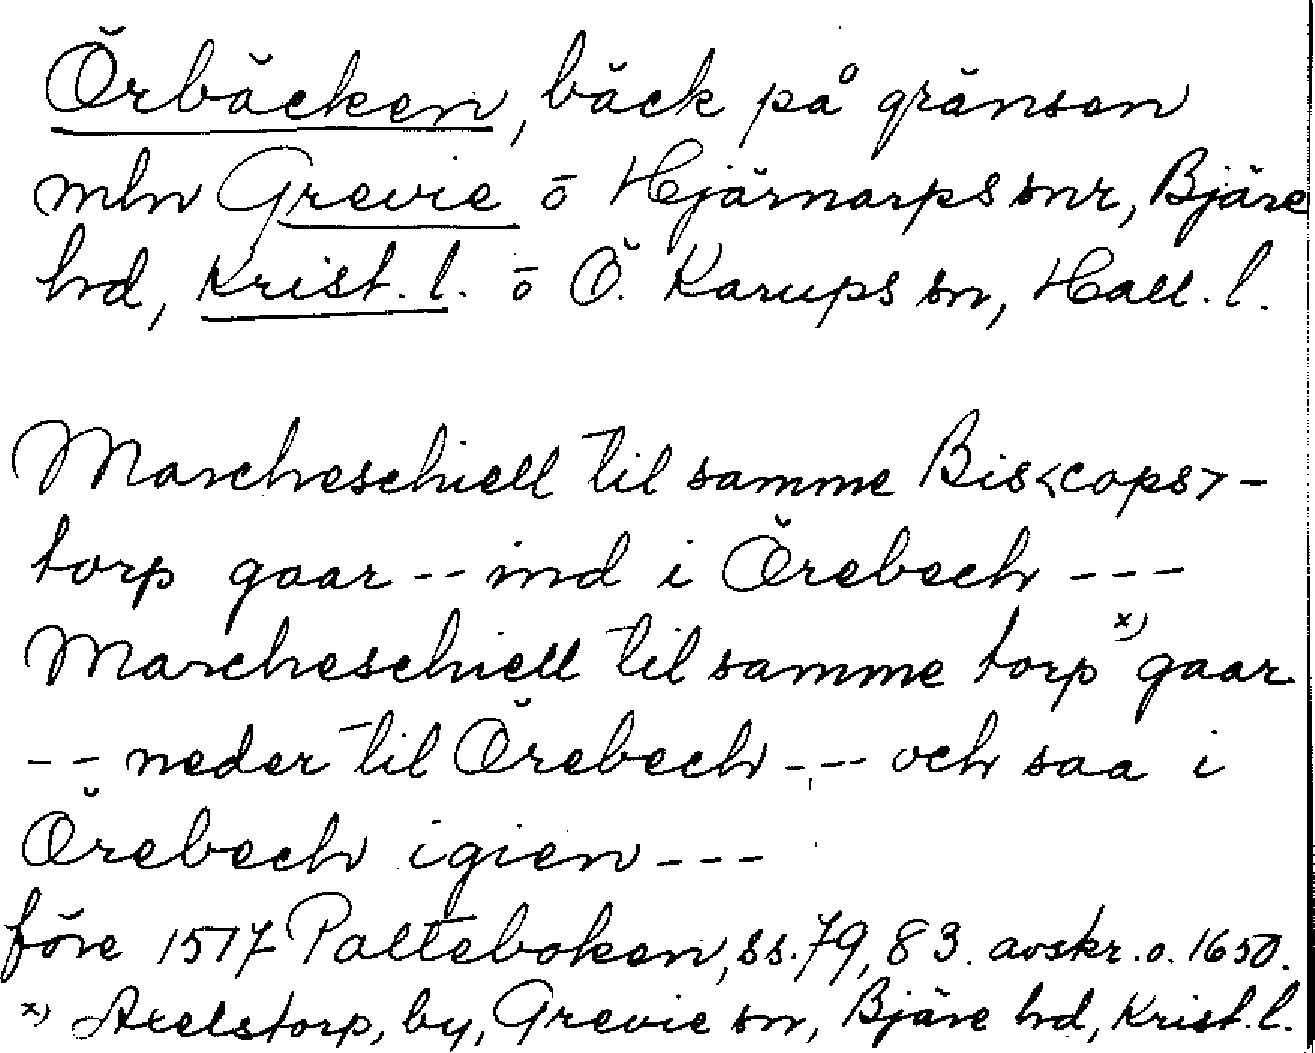 Örbäcken, bäck på gränsen
mln Grevie o Hjärnarps snr, Bjäre
hd, Krist. l. o Ö. Karups sn, Hall. l.
Marcheschiell til samme Bis<cops>-
torp gaar -- ind i Örebech ---
Marcheschiell til samme torp x) gaar
-- neder til Örebech --- och saa i
Örebech igien ---
före 1517 Palteboken, ss. 79, 83. avskr. o. 1650.
x) Axelstorp, by, Grevie sn, Bjäre hd, Krist. l.